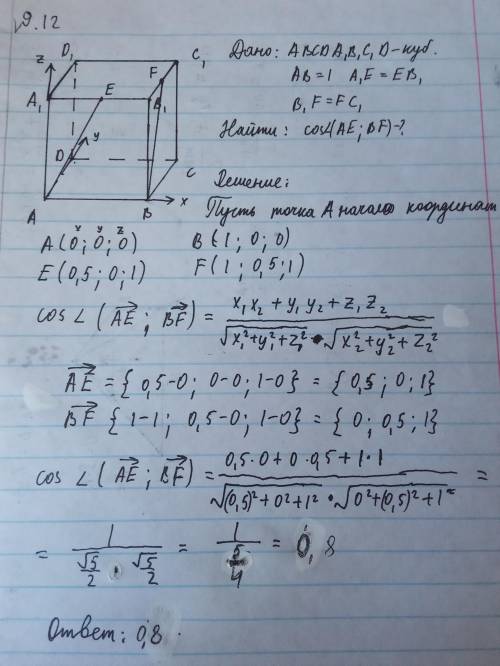 √9.12
Дано: ABCDA₁B₁C₁D - куб.
AB = 1 A₁E = EB₁
B₁F = FC₁
Найти: cos(AE; BF) - ?
z D₁ C₁
F
A₁ E B₁
y
D C
A B x
Решение:
Пусть точка A начало координат
x y z
A(0; 0; 0) B(1; 0; 0)
E(0,5; 0; 1) F(1; 0,5; 1)
cos ∠(AE; BF) = x₁x₂ + y₁y₂ + z₁z₂ / √x₁²+y₁²+z₁² • √x₂²+y₂²+z₂²
AE = {0,5-0; 0-0; 1-0} = {0,5; 0; 1}
BF {1-1; 0,5-0; 1-0} = {0; 0,5; 1}
cos ∠(AE; BF) = 0,5·0+0·0,5+1·1 / √(0,5)²+0²+1² • √0²+(0,5)²+1² =
= 1 / √5/2 · √5/2 = 1 / 5/4 = 0,8
Ответ: 0,8.